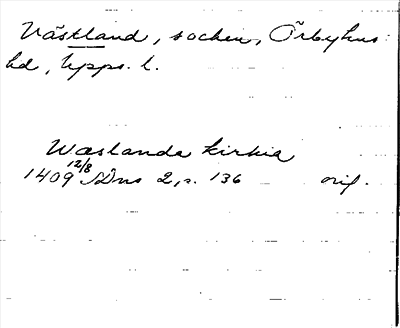 Västland, socken, Örbyhus
hd, Upps. l.
Waslanda kirkia
1409 12/8 SDns 2, s. 136 orig.